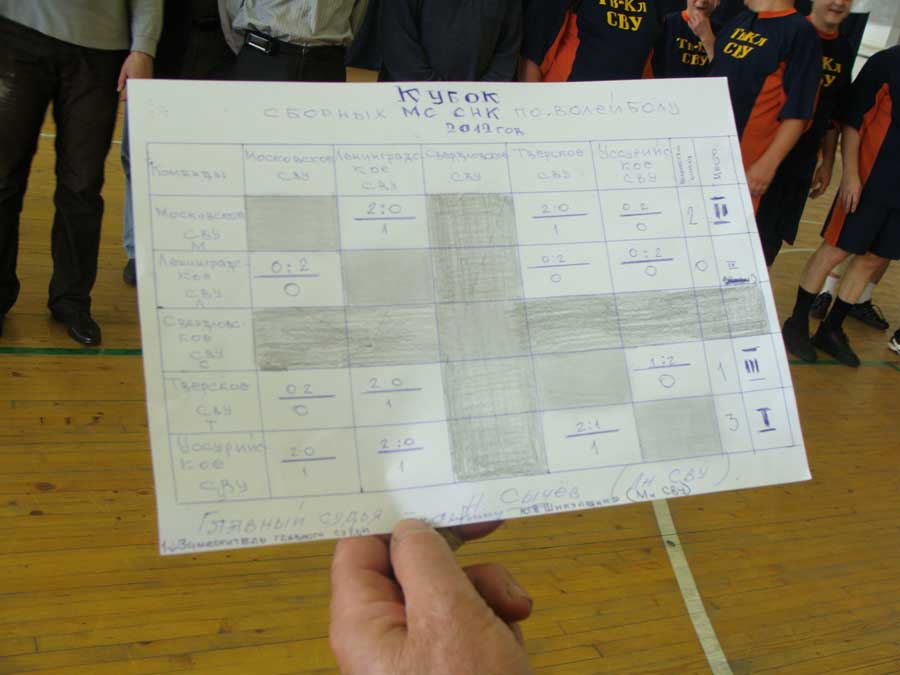 ТВ-КЛ
СВУ
СВУ
ТВ-КЛ
СВУ
СВУ
КУБОК
СБОРНЫХ МС СНК ПО ВОЛЕЙБОЛУ
2012 ГОД
Команды
Московское
СВУ
Ленинградс-
кое
СВУ
Свердловское
СВУ
Тверское
СВУ
Уссурийс-
кое
СВУ
Московское
СВУ
М
2:0
1
2:0
1
0:2
0
2
II
Ленинградс-
кое
СВУ
Л
0:2
0
0:2
0
0:2
0
0
IV
Свердловс-
кое
СВУ
С
Тверское
СВУ
Т
0:2
0
2:0
1
1:2
0
1
III
Уссурийс-
кое
СВУ
2:0
1
2:0
1
2:1
1
3
I
Главный судья Сычёв
Заместитель главного судьи (Мц СВУ)